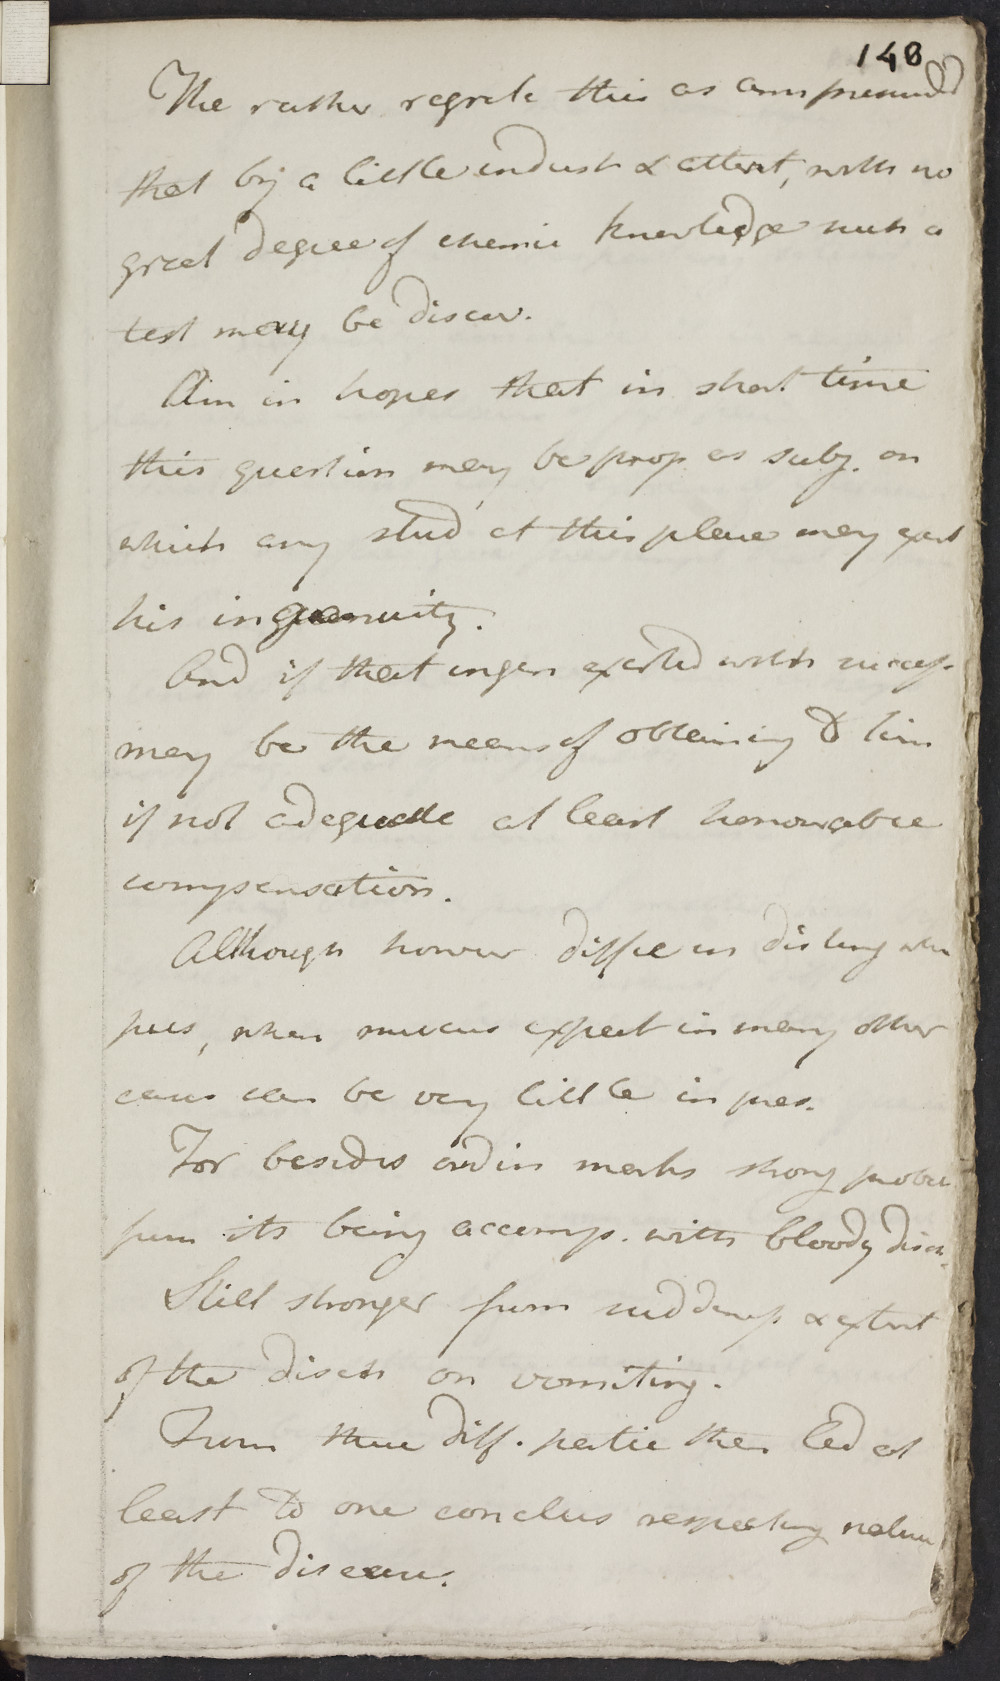 148
The rather regrete this as am persuaded
that by a little indust & attent, with no
great degree of chemic knowledge such a
test may be discov.
Am in hopes that in short time
this question may be prop as subj. on
which any stud at this place may exert
his ingenuity.
And if that ingen exerted with success
may be the means of obtaining to him
if not adequate at least honourable
compensation.
Although howver diffic in disting when
pus, when mucus expect in many other
cases can be very little in pres.
For besides ordin marks strong probab
from its being accomp. with bloody disch.
Still stronger from suddenness & extent
of the disch on vomiting.
From these diff. partic then led at
least to one conclus respecting nature
of the disease.